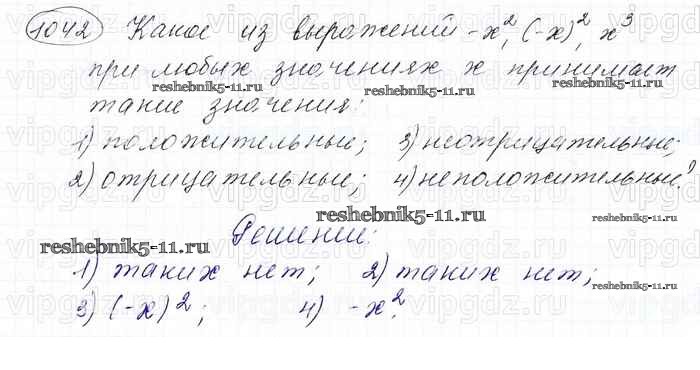 1042 Какое из выражений -x², (-x)², x³
при любых значениях x принимает
такие значения:
1) положительные; 3) неотрицательные;
2) отрицательные; 4) неположительные?
Решение:
1) таких нет; 2) таких нет;
3) (-x)²; 4) -x².
reshebnik5-11.ru
reshebnik5-11.ru
reshebnik5-11.ru
reshebnik5-11.ru
reshebnik5-11.ru
reshebnik5-11.ru
vipgdz.ru